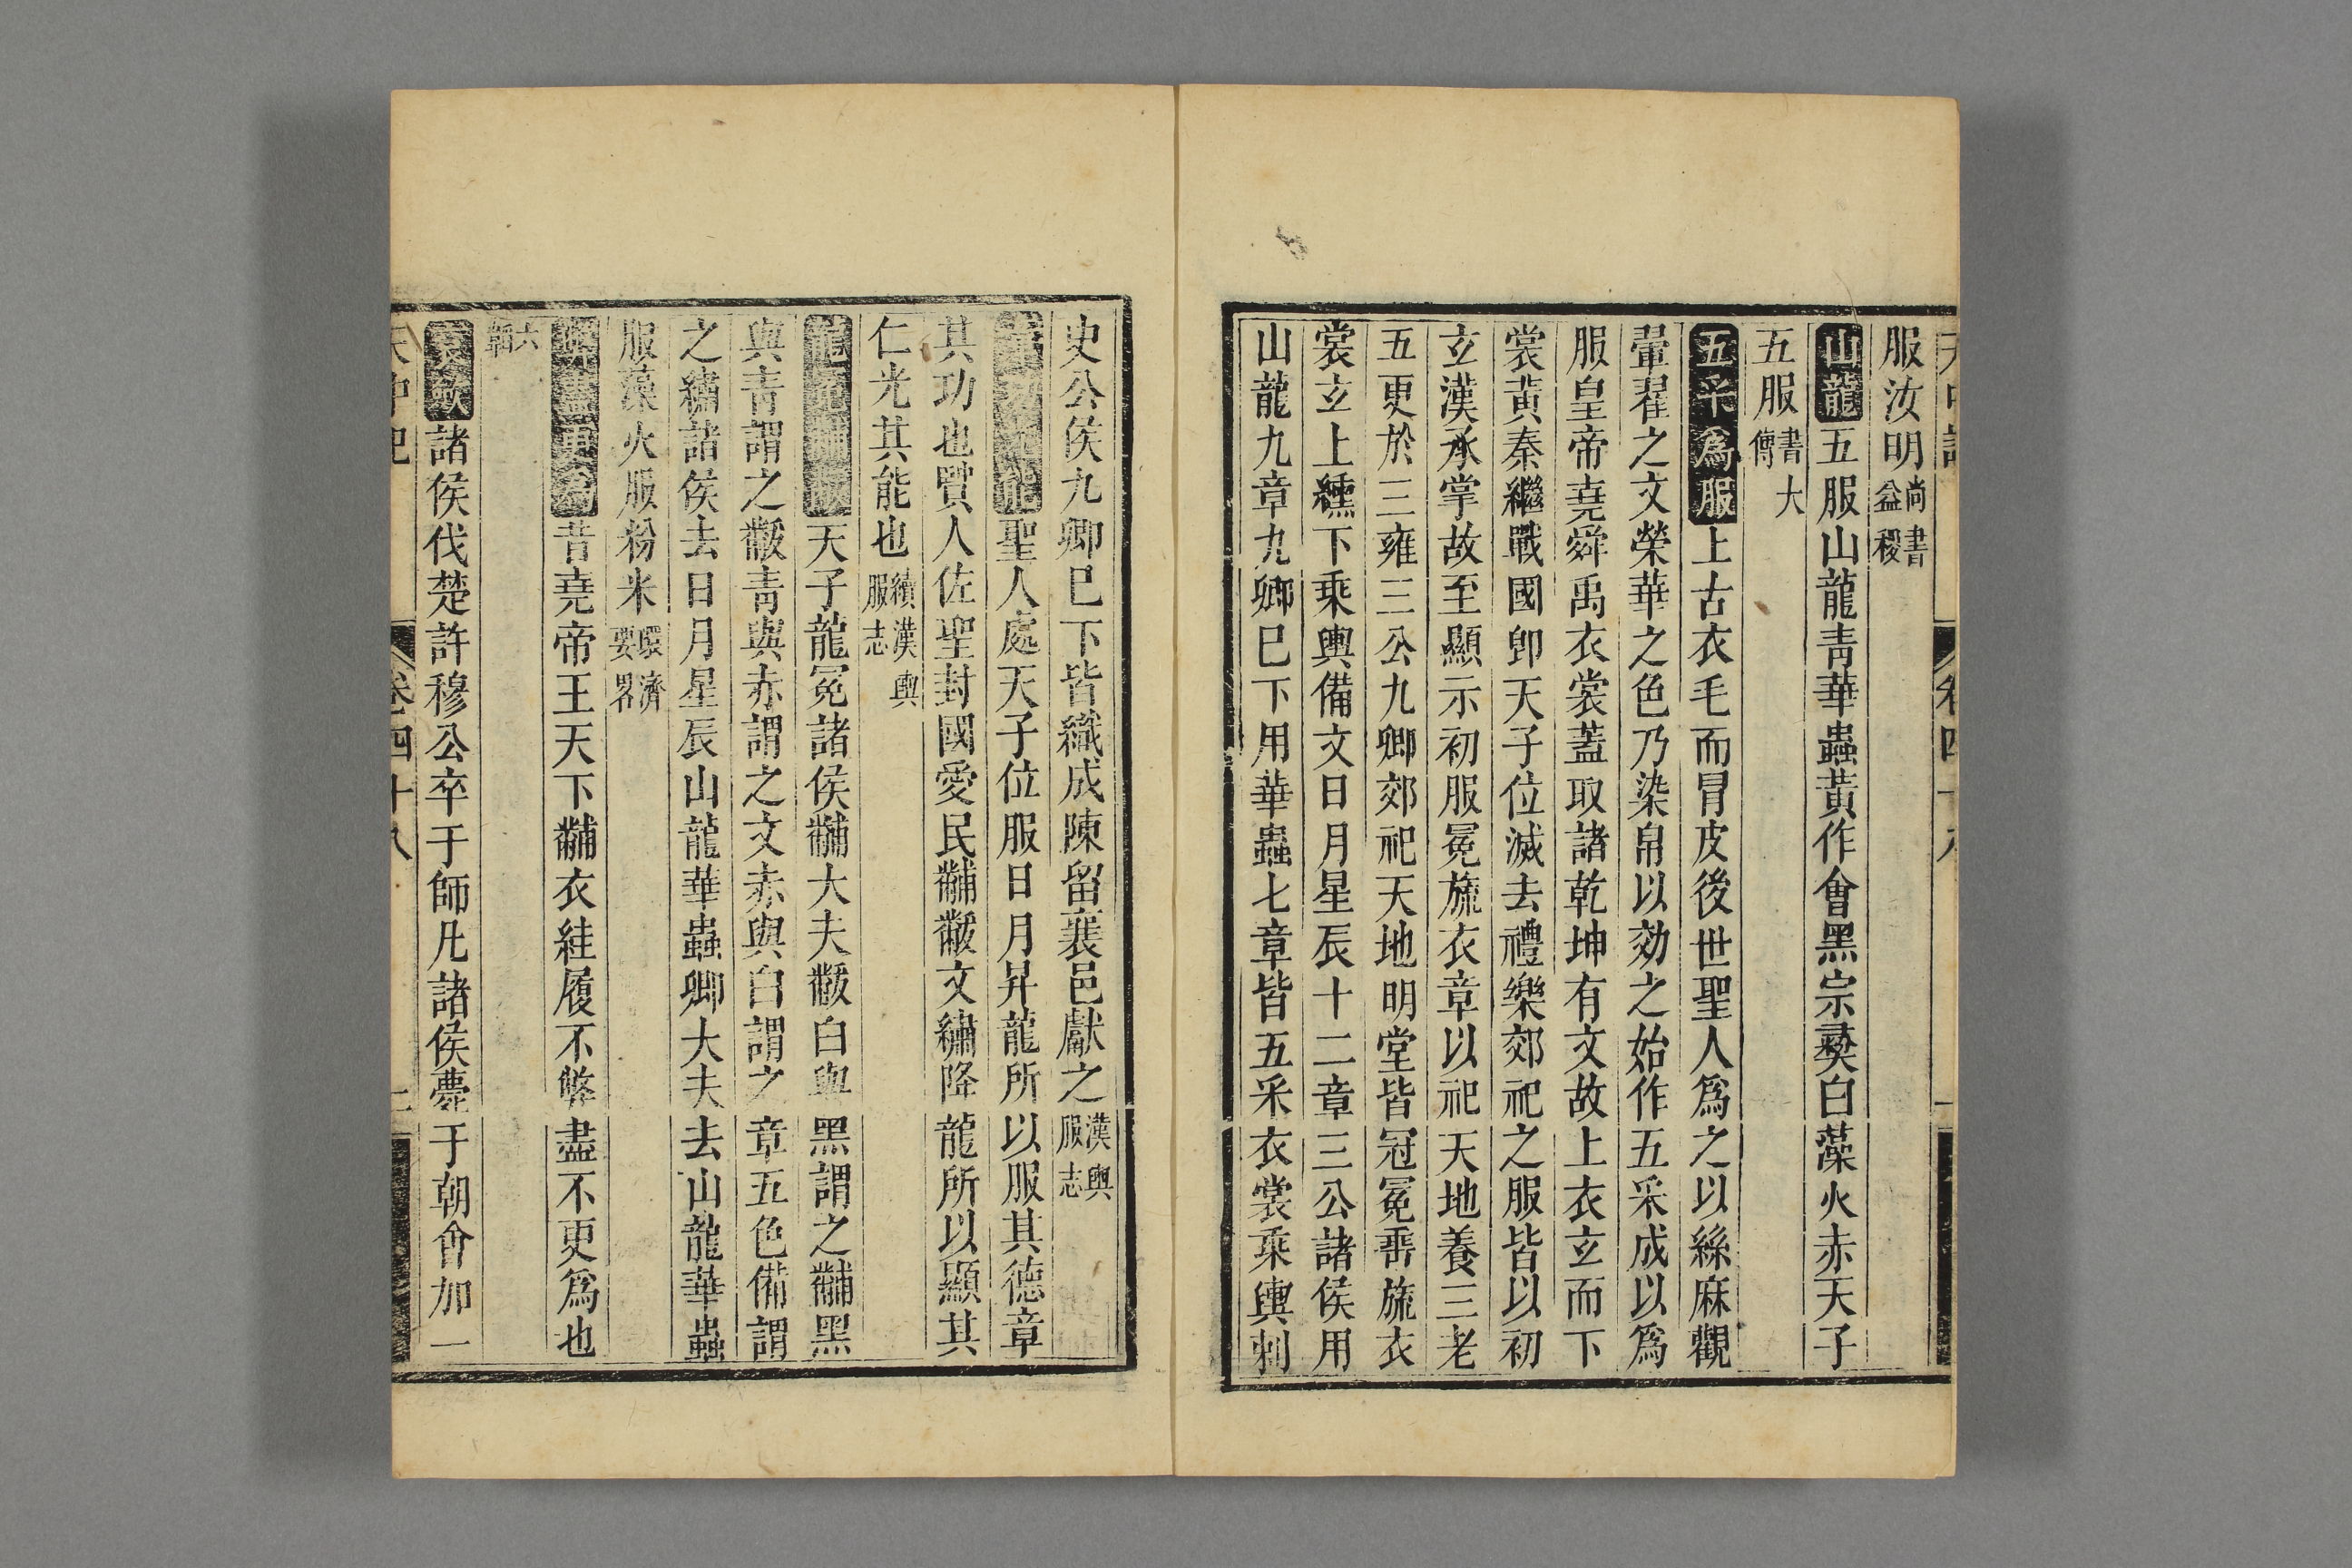 服汝明尚書益稷
山龍五服山龍青華蟲黃作會黑宗彞白藻火赤天子
五服書大傳
五采為服上古衣毛而冒皮後世聖人爲之以絲麻觀
翬翟之文榮華之色乃染帛以効之始作五采成以爲
服皇帝堯舜禹衣裳蓋取諸乾坤有文故上衣玄而下
裳黃秦繼戰國卽天子位滅去禮樂郊祀之服皆以初
玄漢承掌故至顯示初服冕旒衣章以祀天地養三老
五更於三雍三公九卿郊祀天地明堂皆冠冕垂旒衣
裳玄上纁下乘輿備文日月星辰十二章三公諸侯用
山龍九章九卿巳下用華蟲七章皆五采衣裳乘輿刺
史公侯九卿巳下皆織成陳留襄邑獻之漢輿服志
聖人處天子位服日月昇龍所以服其德章
其功也賢人佐聖封國愛民黼黻文繡降龍所以顯其
仁光其能也續漢輿服志
龍冕黼黻天子龍冕諸侯黼大夫黻白與黑謂之黼黑
與青謂之黻青與赤謂之文赤與白謂之章五色備謂
之繡諸侯去日月星辰山龍華蟲卿大夫去山龍華蟲
服藻火服粉米環濟要畧
弊盡更爲昔堯帝王天下黼衣絓履不弊盡不更爲也
六韜
袞斂諸侯伐楚許穆公卒于師凡諸侯薨于朝會加一
天中記 卷四十八